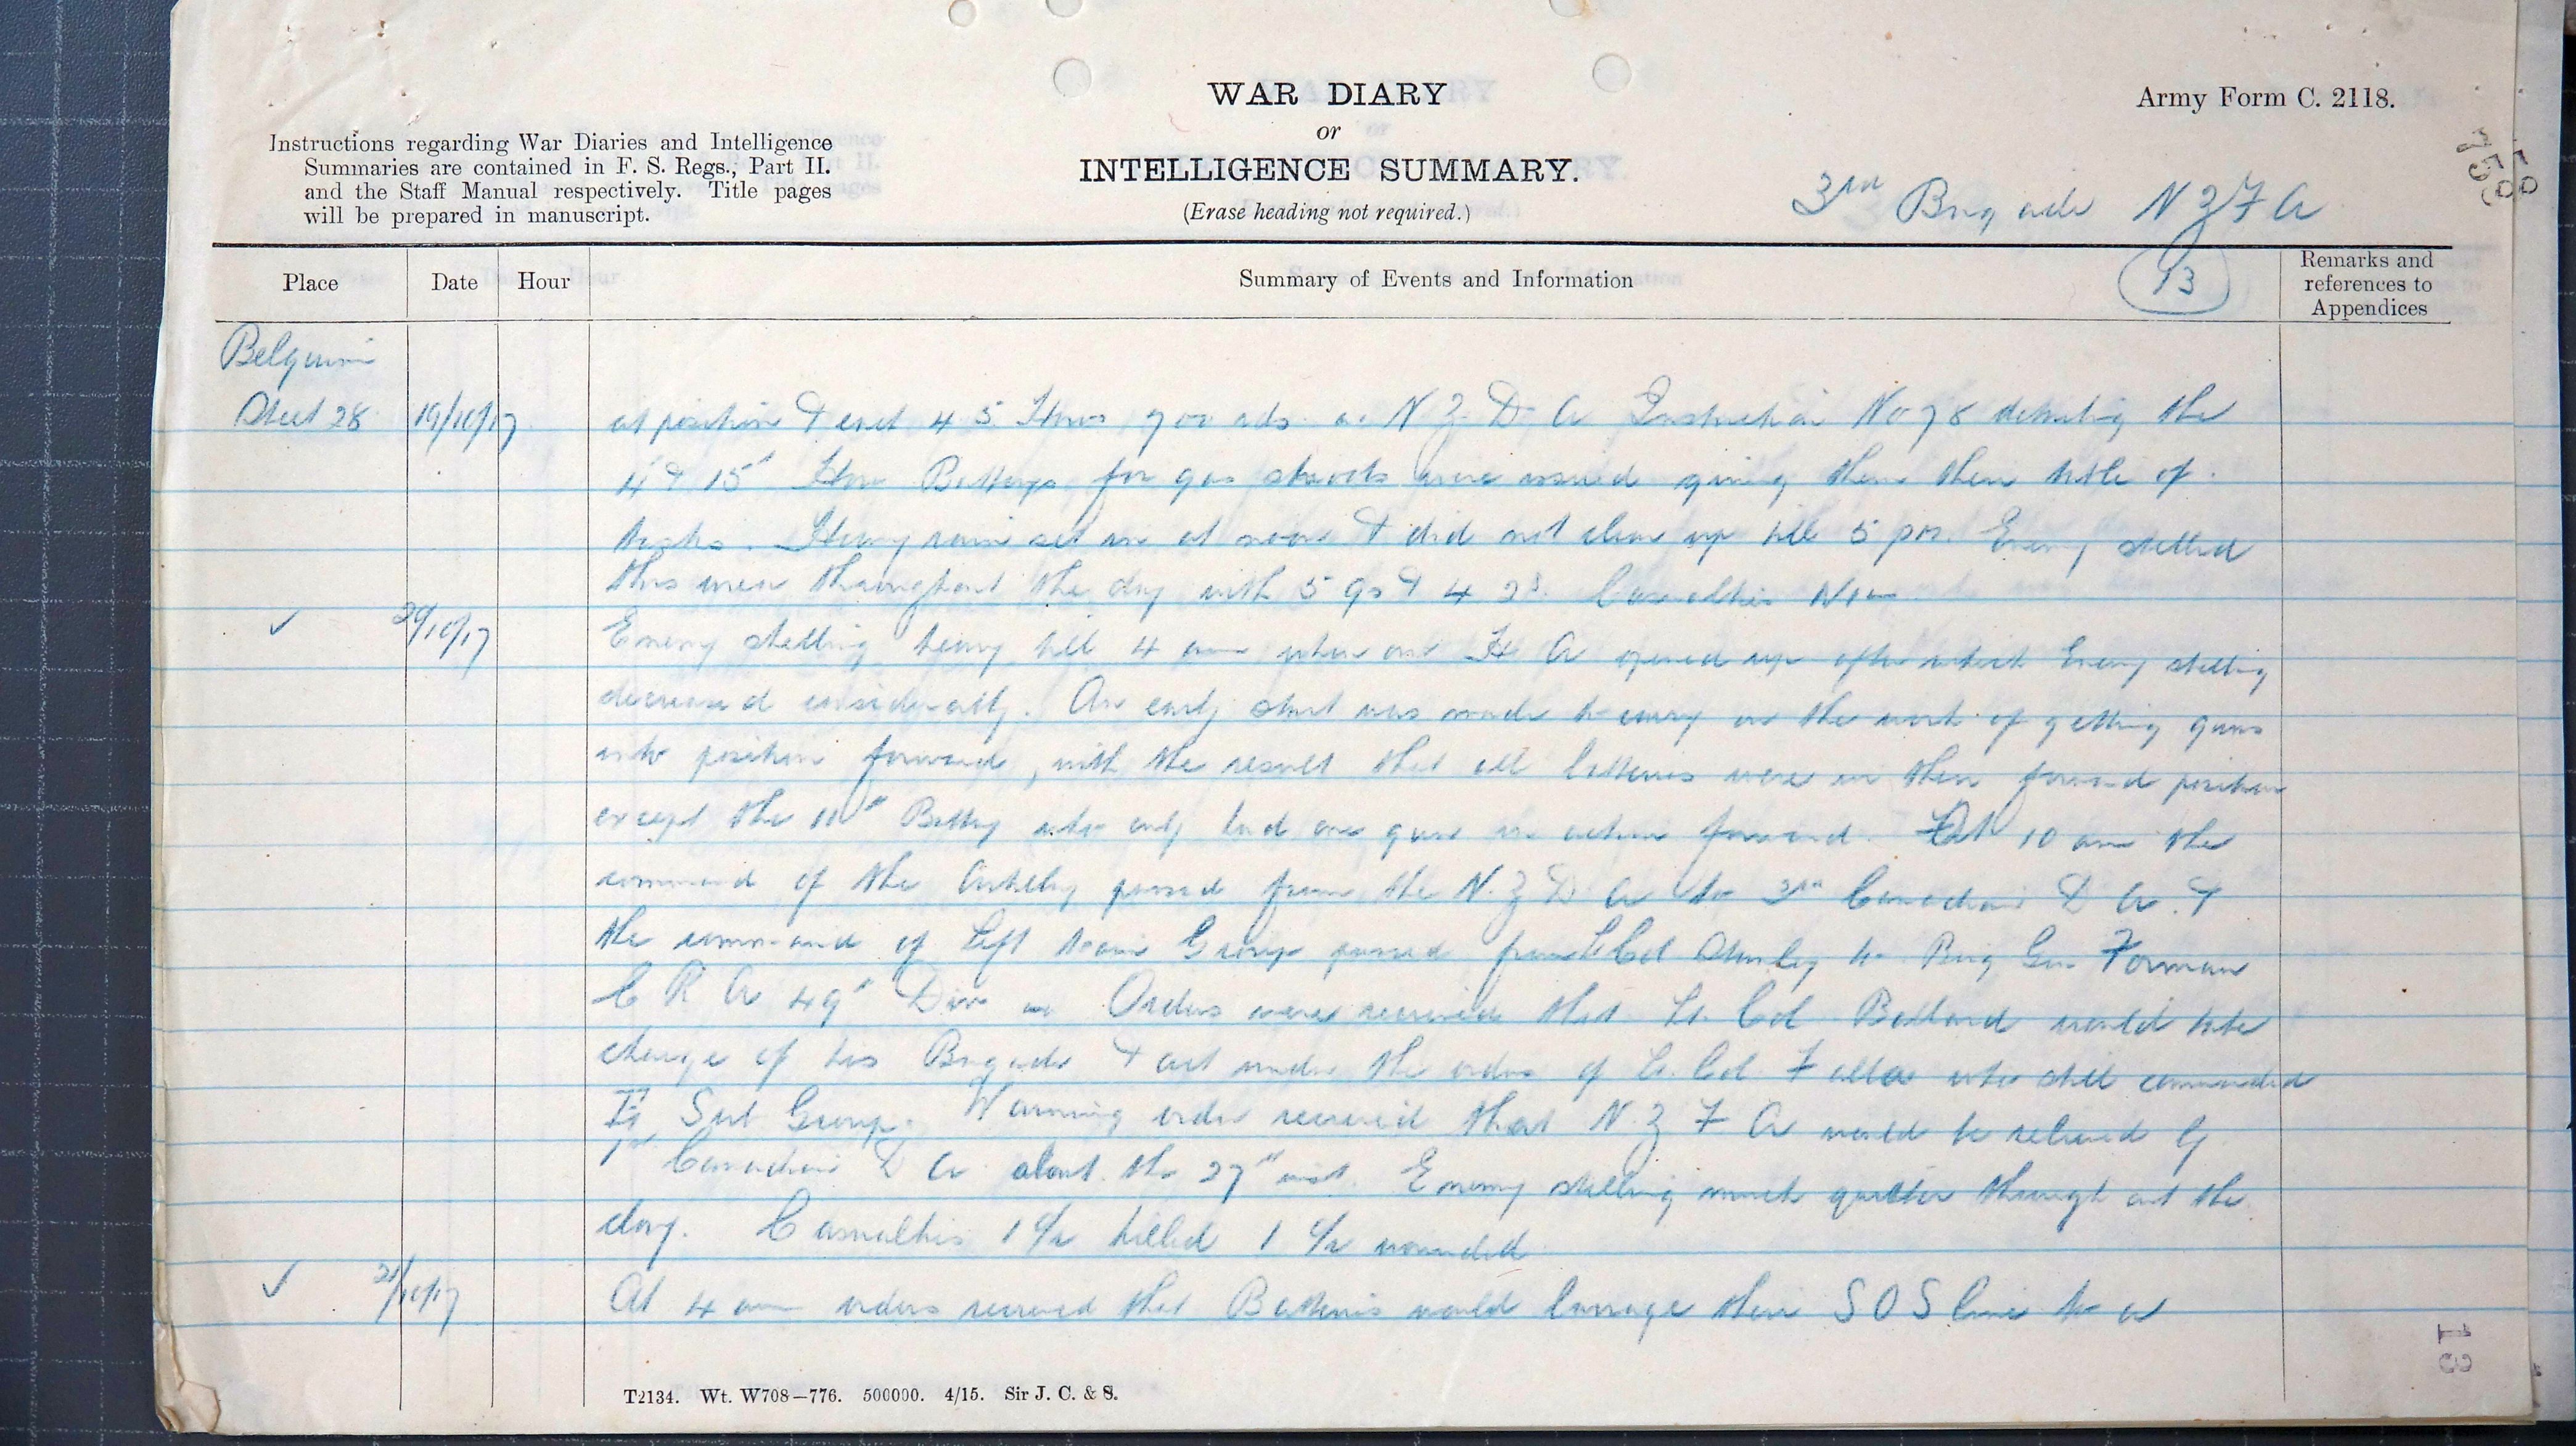 WAR DIARY
or
INTELLIGENCE SUMMARY.
(Erase heading not required.)
Army Form C. 2118.
Instructions regarding War Diaries and Intelligence
Summaries are contained in F. S. Regs., Part II.
and the Staff Manual respectively. Title pages
will be prepared in manuscript.
3rd Brigade N Z F A
13
Place Date Hour Summary of Events and Information Remarks and references to Appendices
Belguim
Sheet 28 19/10/17 at position & each 4 5 Hows 700 rds. N Z D A Instruction No 78 detailing the
4 & 15th How Batterys for gas shoots were issued giving them their table of
tasks. Heavy rain set in at noon & did not clear up till 5 pm. Enemy shelled
this area throughout the day with 5 9s & 4 2s. Casualties Nil
20/10/17 Enemy shelling heavy till 4 am when our H A opened up after which Enemy shelling
decreased considerably. An early start was made to carry on the work of getting guns
into position forward, with the result that all batteries were in their forward position
except the 11th Battery who only had one gun in action forward. At 10 am the
command of the Artillery passed from the N. Z D A to 3rd Canadian D A. &
the command of Left Group passed from Lt Col to Brig Gen Forman
C R A 49th Div Orders were received that Lt. Col Ballard would take
charge of his Brigade & act under the orders of Lt. Col. Falla who still commanded
Sub Group. Warning order received that N. Z F A would be relieved by
1st Canadian D A about the 27th inst. Enemy shelling much quieter through out the
day. Casualties 1 O/R killed 1 O/R wounded
21/10/17 At 4 am orders received that Batteries would barrage their S O S line to a
T2134. Wt. W708—776. 500000. 4/15. Sir J. C. & S.
13